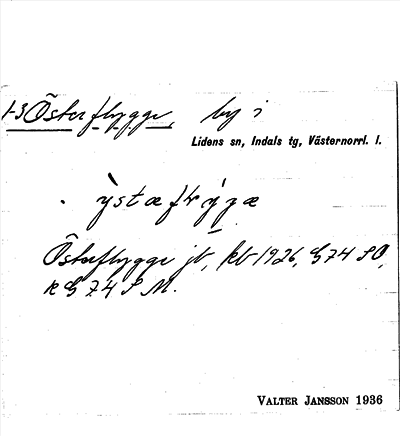 1-3 Österflygge, by i
Lidens sn, Indals tg, Västernorrl. l.
Österflygge jb, kb 1926, G 74 SO,
k G 74 S M.
VALTER JANSSON 1936